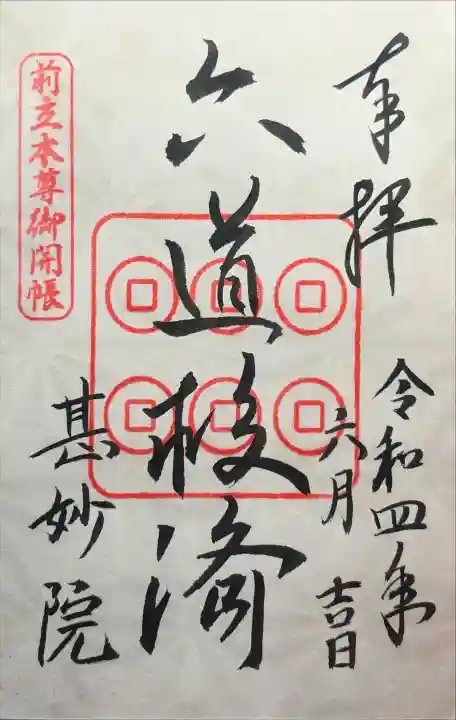 奉拝
令和四年
六月 吉日
六道救済
甚妙院
前立本尊御開帳